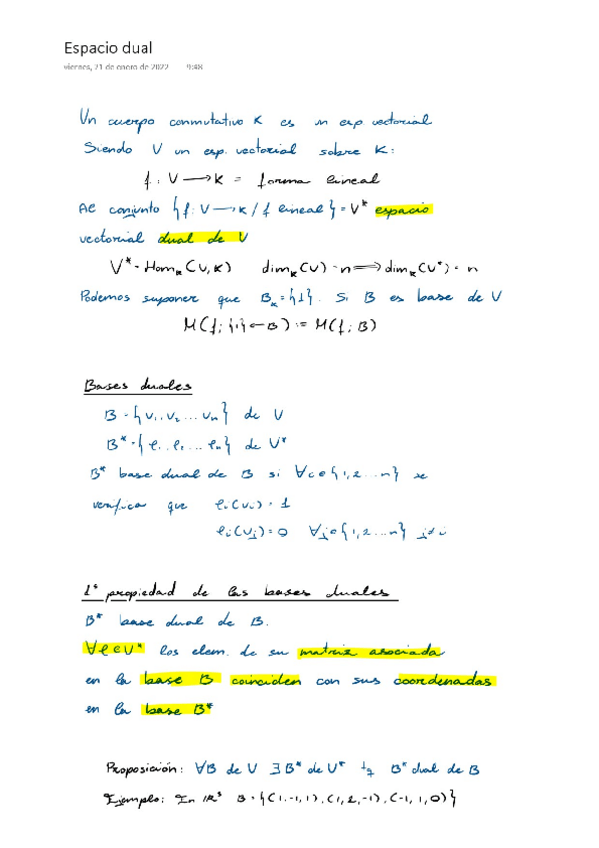 Espacio dual
viernes, 21 de enero de 2022 9:48
Un cuerpo conmutativo K es un esp vectorial
Siendo V un esp. vectorial sobre K:
f: V → K = forma lineal
Al conjunto {f: V → K / f lineal} = V* espacio
vectorial dual de V
V* = Hom_K (V, K) dim_K (V) = n ⟹ dim_K (V*) = n
Podemos suponer que B_K = {1}. Si B es base de V
M(f; {1} ← B) := M(f; B)
Bases duales
B = {v₁, v₂ ... vₙ} de V
B* = {e₁, e₂ ... eₙ} de V*
B* base dual de B si ∀i∈{1,2...n} se
verifica que eᵢ(vᵢ) = 1
eᵢ(vⱼ) = 0 ∀j∈{1,2...n} j≠i
1ª propiedad de las bases duales
B* base dual de B.
∀e∈V* los elem. de su matriz asociada
en la base B coinciden con sus coordenadas
en la base B*
Proposición: ∀B de V ∃B* de V* tq B* dual de B
Ejemplo: En ℝ³ B = {(1,-1,1), (1,2,-1), (-1,1,0)}